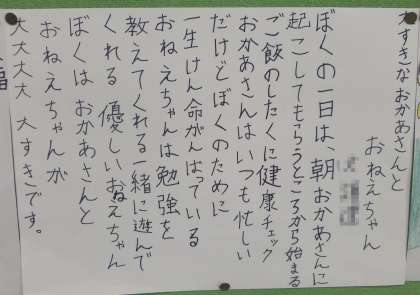 大すきなおかあさんと
おねえちゃん
ぼくの一日は、朝おかあさんに
起こしてもらうところから始まる
ご飯のしたくに健康チェック
おかあさんはいつも忙しい
だけどぼくのために
一生けん命がんばっている
おねえちゃんは勉強を
教えてくれる一緒に遊んで
くれる 優しいおねえちゃん
ぼくは おかあさんと
おねえちゃんが
大大大大 大すきです。